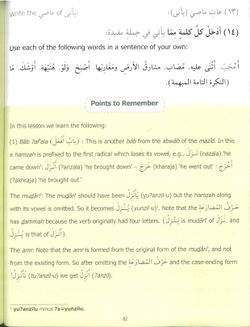 Write the ماضي of (يأبى). (١٣) هات ماضي (يأبى).
(١٤) أدخل كل كلمة مما يأتي في جملة مفيدة:
Use each of the following words in a sentence of your own:
أنجب. أثنى عليه. مصاب. مشارق الأرض ومغاربها. أصبح. ولو. هنيهة. أوشك. ما
(النكرة التامة المبهمة).
Points to Remember
In this lesson we learn the following:
(1) Bāb ʔafʿala (باب أَفْعَلَ) : This is another bāb from the abwāb of the mazīd. In this
a hamzah is prefixed to the first radical which loses its vowel, e.g., نَزَلَ (nazala) 'he
came down': أَنْزَلَ (ʔanzala) 'he brought down' -- خَرَجَ (kharaja) 'he went out' : أَخْرَجَ
(ʔakhraja) 'he brought out.'
The muḍāriʿ: The muḍāriʿ should have been يُؤَنْزِلُ (yuʔanzilu)¹ but the hamzah along
with its vowel is omitted. So it becomes يُنْزِلُ (yunzilu). Note that the حرف المضارعة
has ḍammah because the verb originally had four letters. (يَنْزِلُ is muḍāriʿ of نَزَلَ, and
يُنْزِلُ is that of أَنْزَلَ).
The amr: Note that the amr is formed from the original form of the muḍāriʿ, and not
from the existing form. So after omitting the حرف المضارعة and the case-ending form
تُؤَنْزِلُ (tuʔanzilu) we get أَنْزِلْ (ʔanzil).
¹ yuʔanzilu minus ʔa=yunzilu.
82